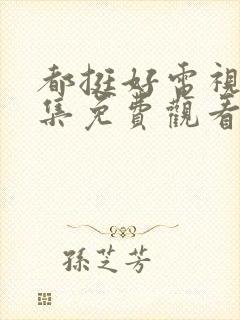 都挺好電視
集免費觀看
孫芝芳